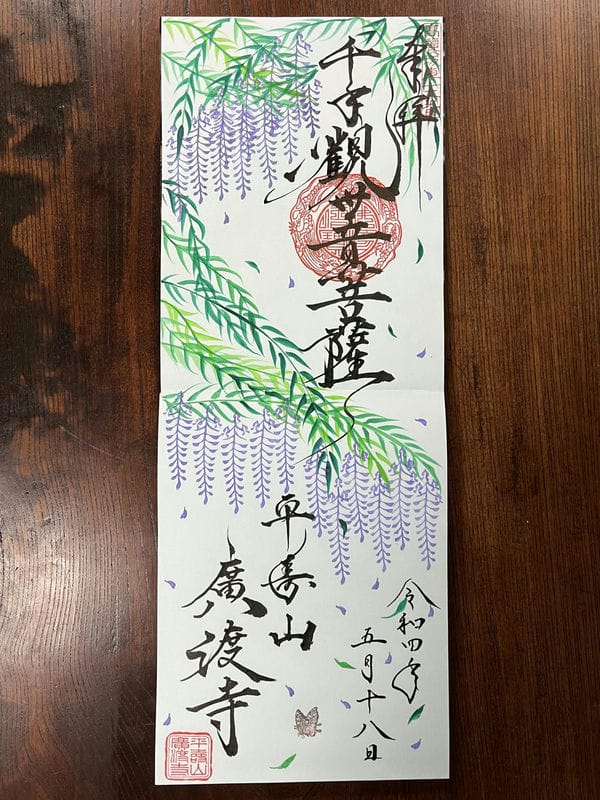 奉拝
千手觀世音菩薩
令和四年
五月十八日
平寿山
廣渡寺
平壽山
廣渡寺